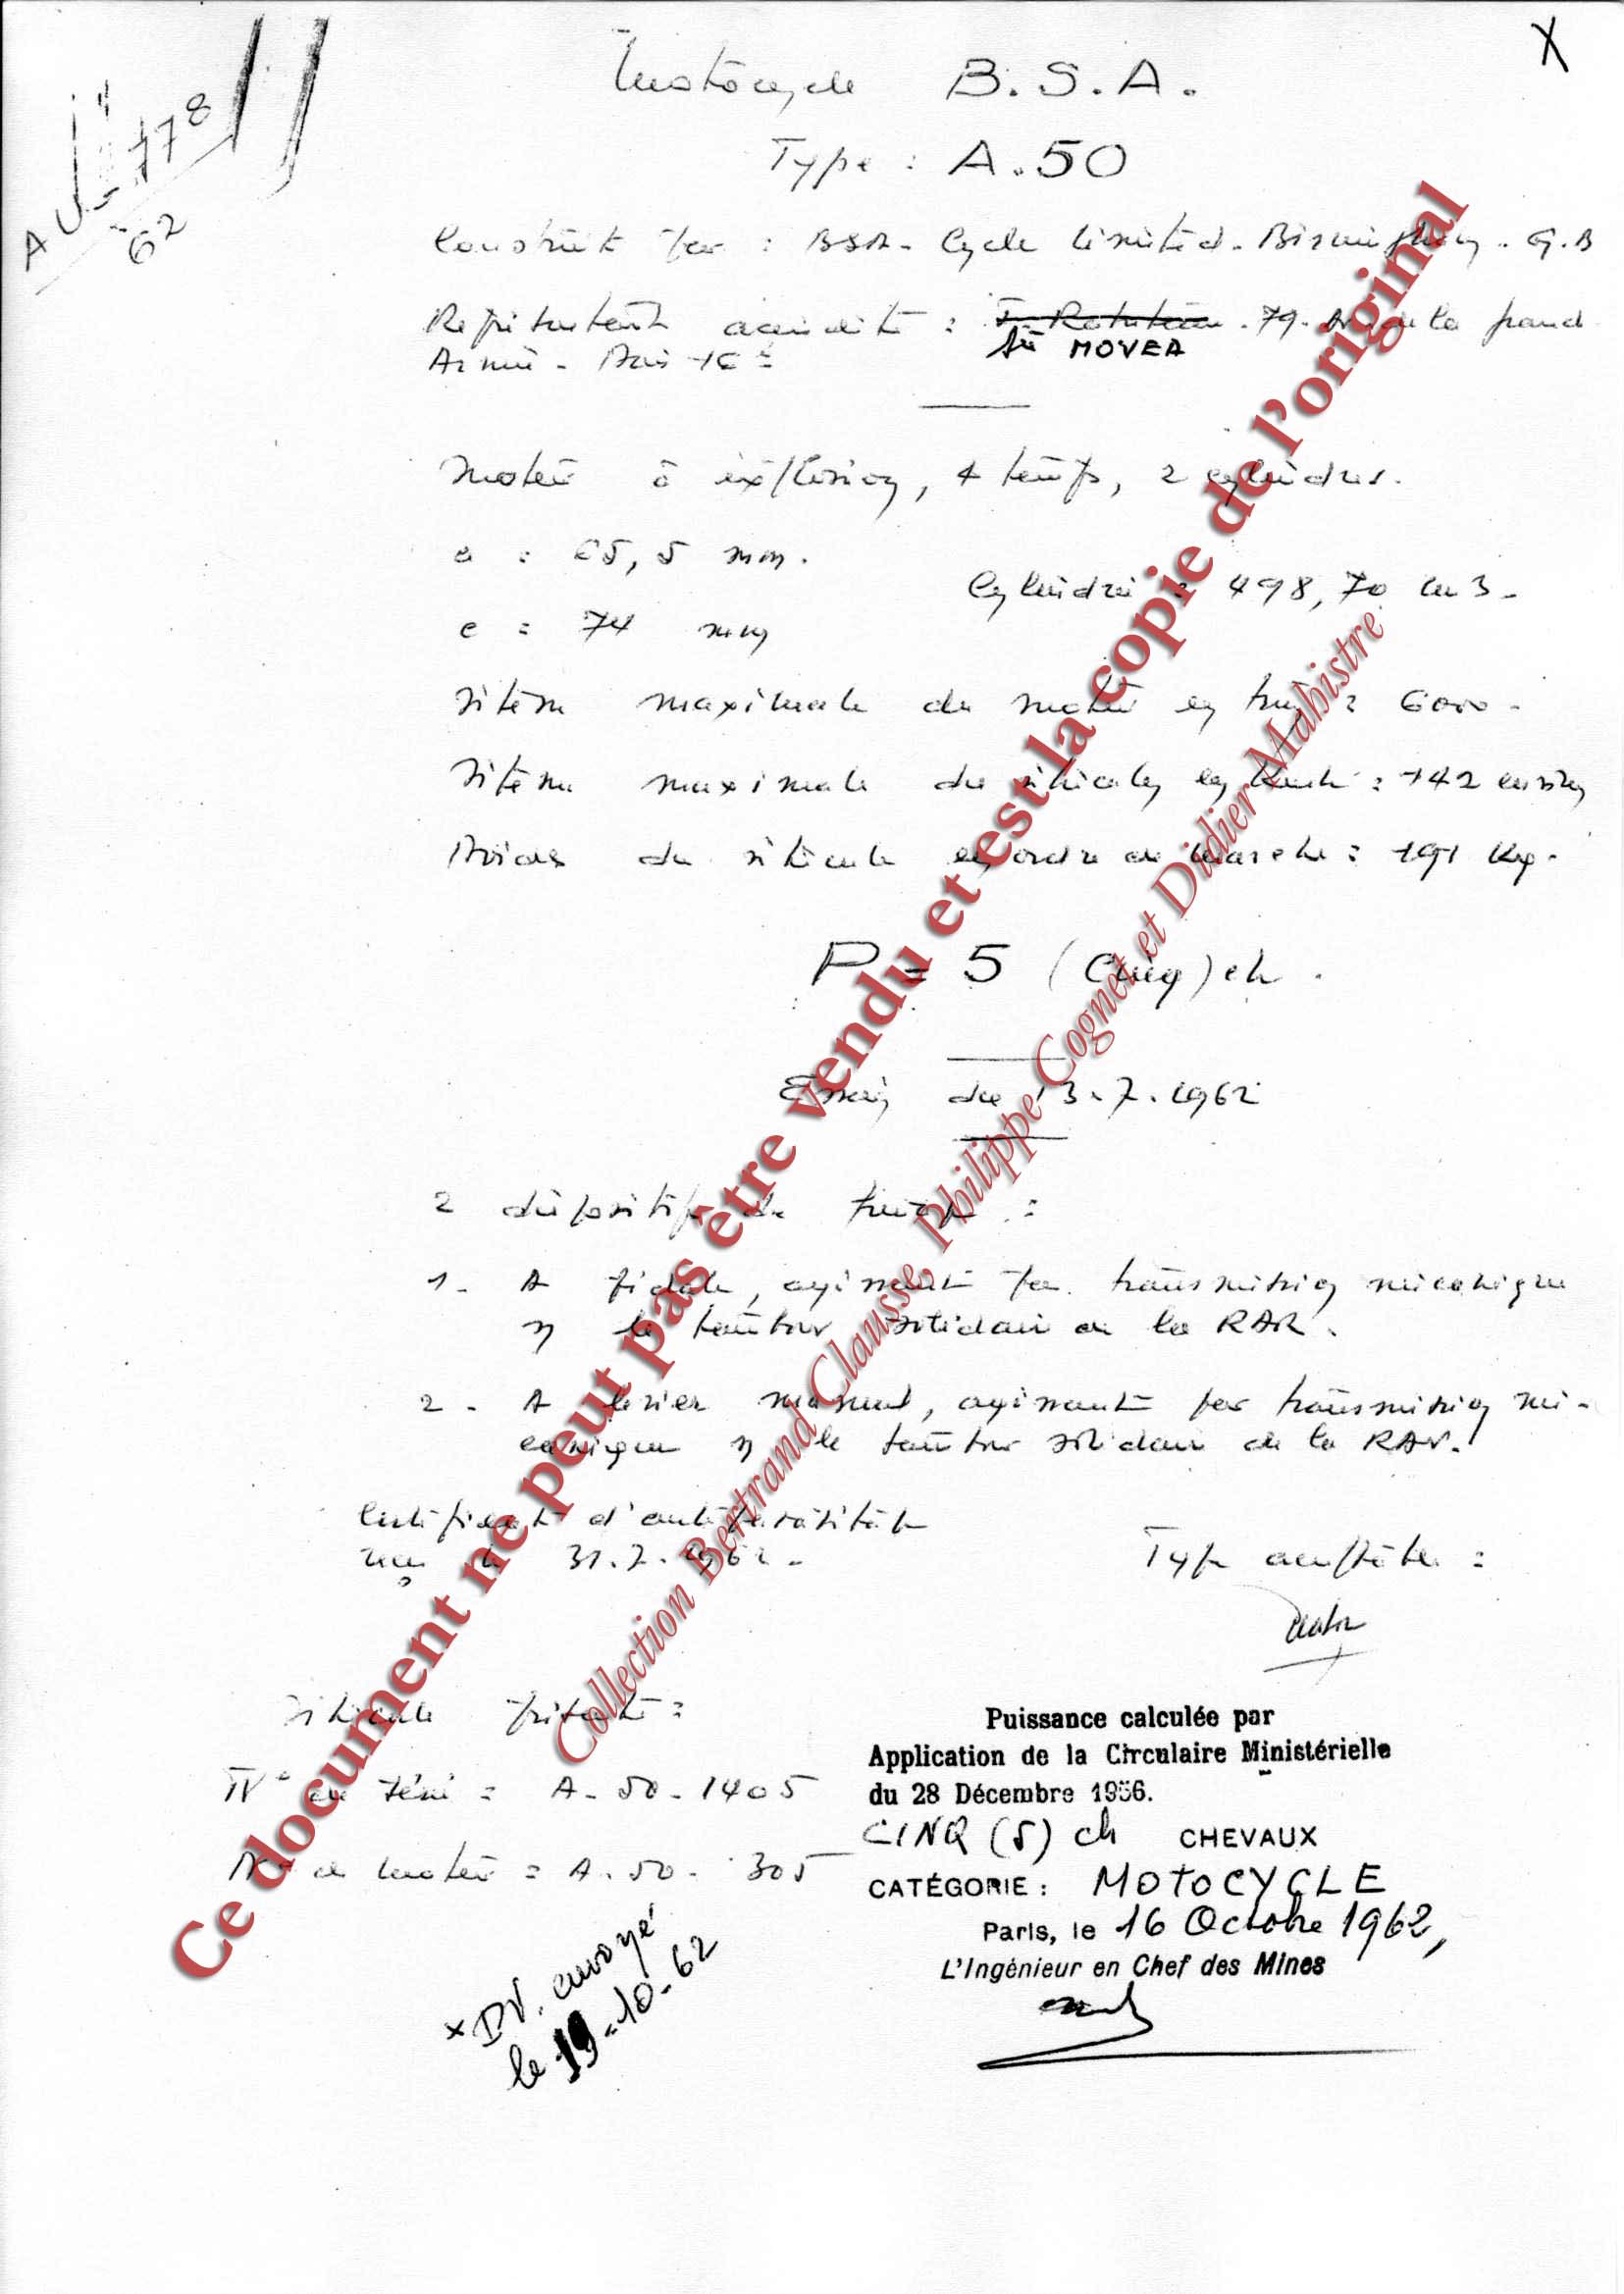 X
A 178
62
Motocycle B.S.A.
Type : A.50
Construit par : BSA - Cycle Limited - Birmingham. G.B
Représentant accrédité : 79. Av. de la grand
Sté MOVEA
Armée - Paris 16e
Moteur à explosion, 4 temps, 2 cylindres.
a : 65,5 mm.
Cylindrée : 498,70 cm3 -
c : 74 mm
Vitesse maximale du moteur en : 6000 -
Vitesse maximale du véhicule en : 142 km
Poids du véhicule en ordre de marche : 191 kg.
P = 5 (Cinq) ch.
Essai du 13.7.1962
2 dispositifs de freinage :
1. A pédale, agissant par transmission mécanique
s/ le tambour solidaire de la RAR.
2 - A levier manuel, agissant par transmission mé-
canique s/ le tambour solidaire de la RAV.
Certificat d'antiparasitage
reçu le 31.7.1962 -
Type :
Véhicule présenté :
N° de série : A - 50 - 1405
N° de moteur : A - 50 - 305
Puissance calculée par
Application de la Circulaire Ministérielle
du 28 Décembre 1956.
CINQ (5) ch CHEVAUX
CATÉGORIE : MOTOCYCLE
Paris, le 16 Octobre 1962,
L'Ingénieur en Chef des Mines
x DV. envoyé
le 19-10-62
Ce document ne peut pas être vendu et est la copie de l'original
Collection Bertrand Clausse, Philippe Cognet et Didier Mahistre